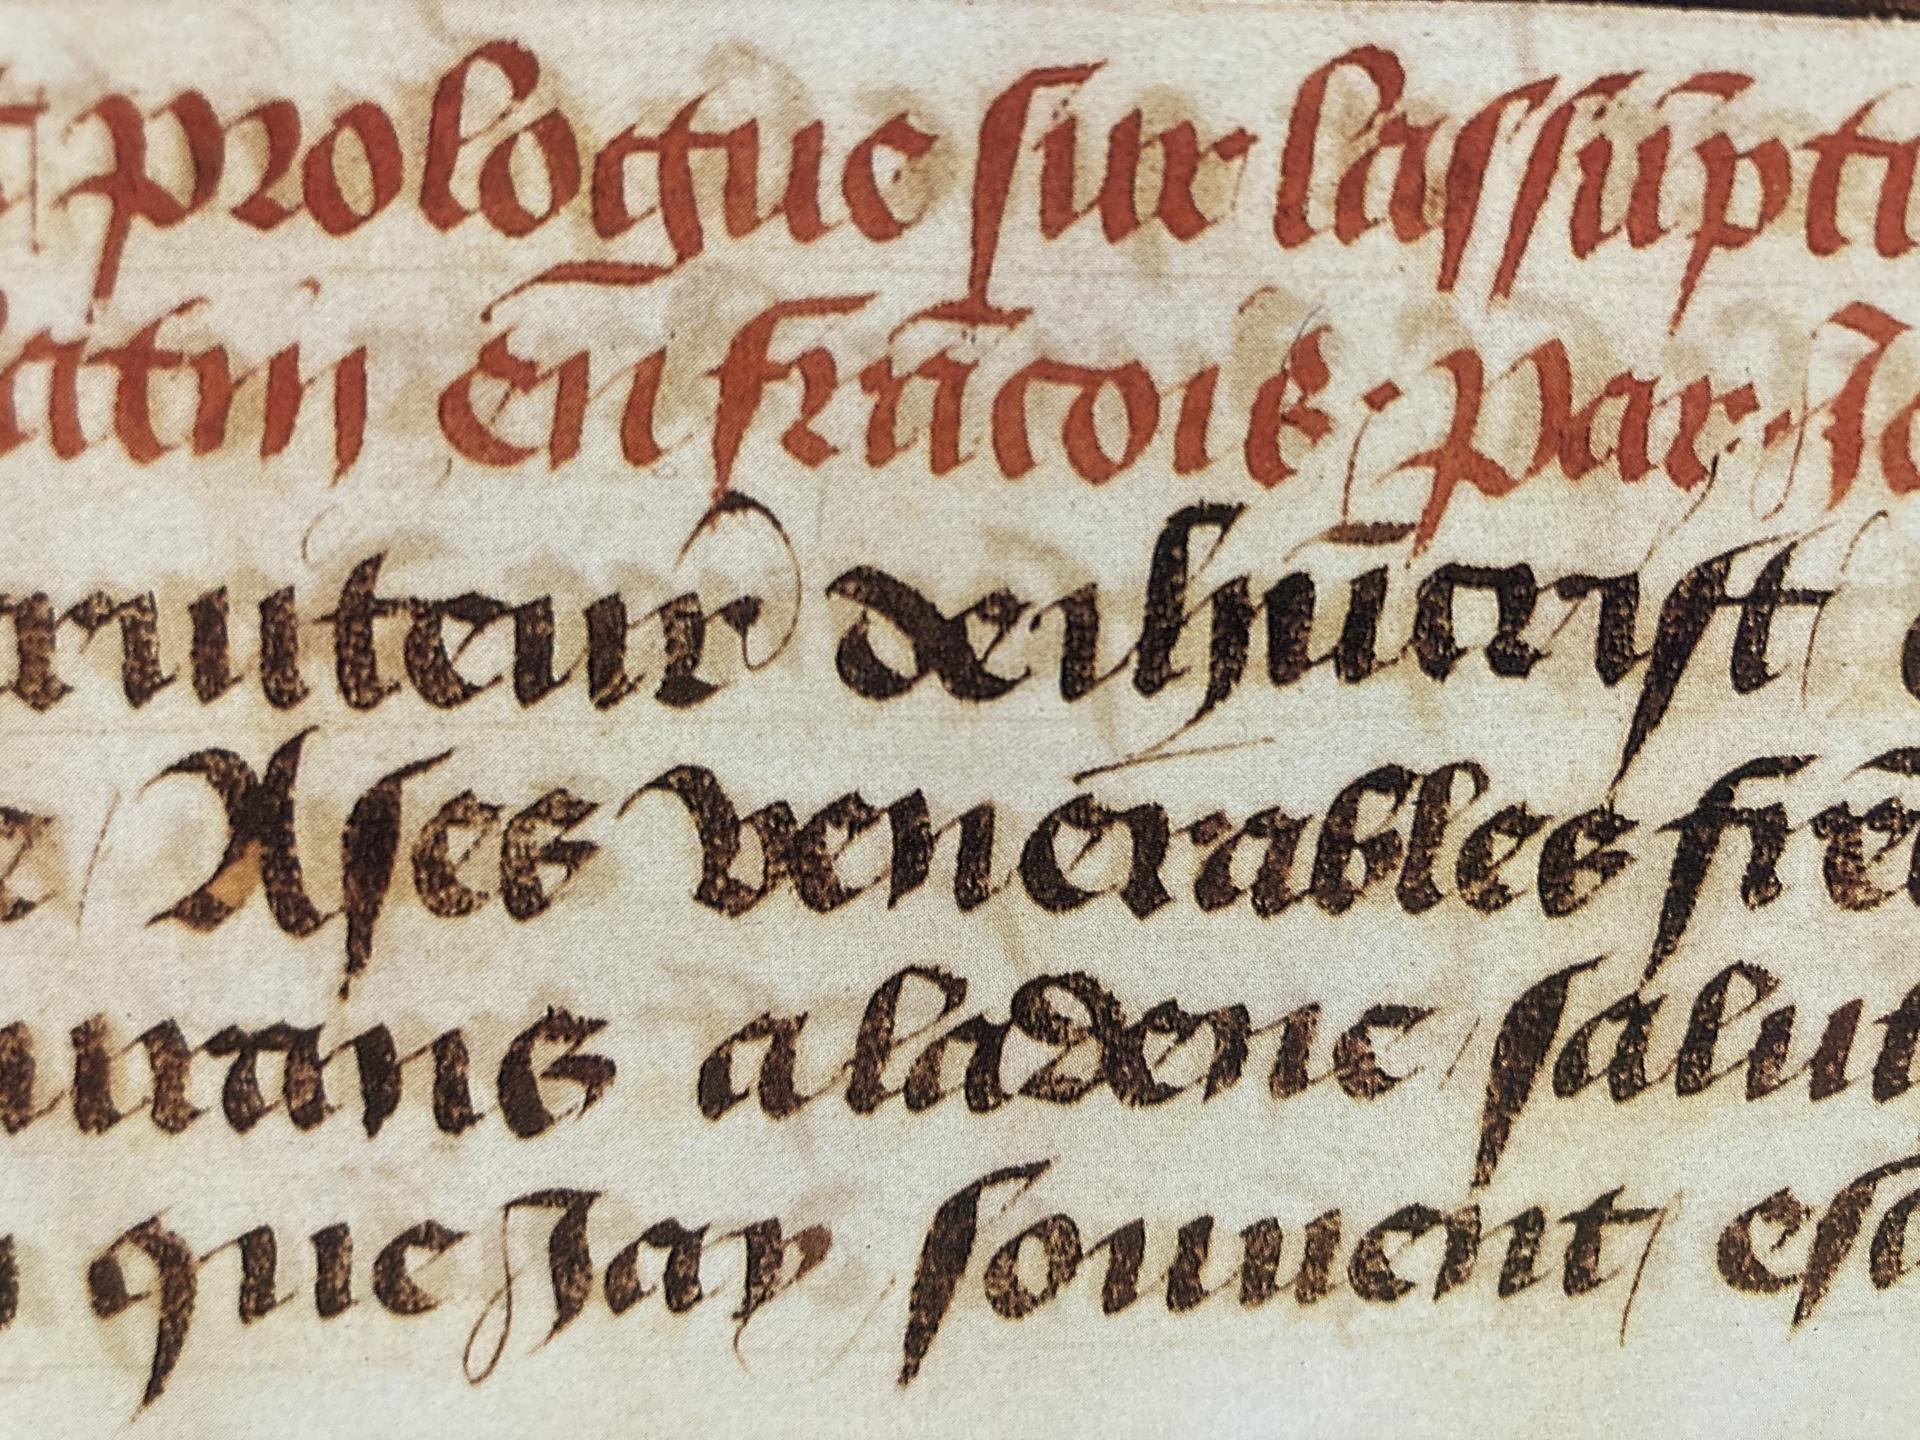 prologue sur lassūpti
latin en frācois · par · Jo
ruiteur de ihūcrist
A ses venerables frē
urans a la dene / salut
que Jay souuent / esc